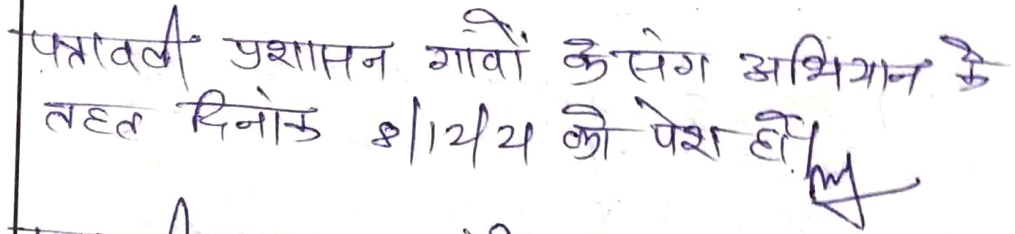 पत्रावली प्रशासन गावों के संग अभियान के
तहत दिनांक 8/12/21 को पेश हों।